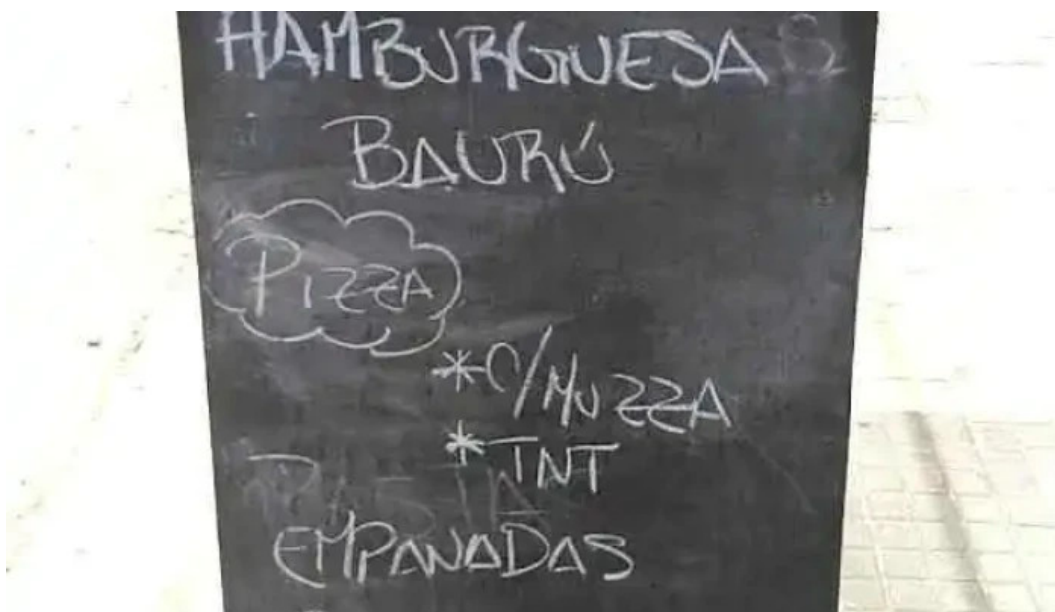 HAMBURGUESA
BAURÚ
PIZZA
*C/MUZZA
*TNT
PASTA
EMPANADAS